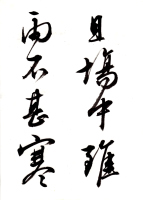 且場中雖
雨不甚寒